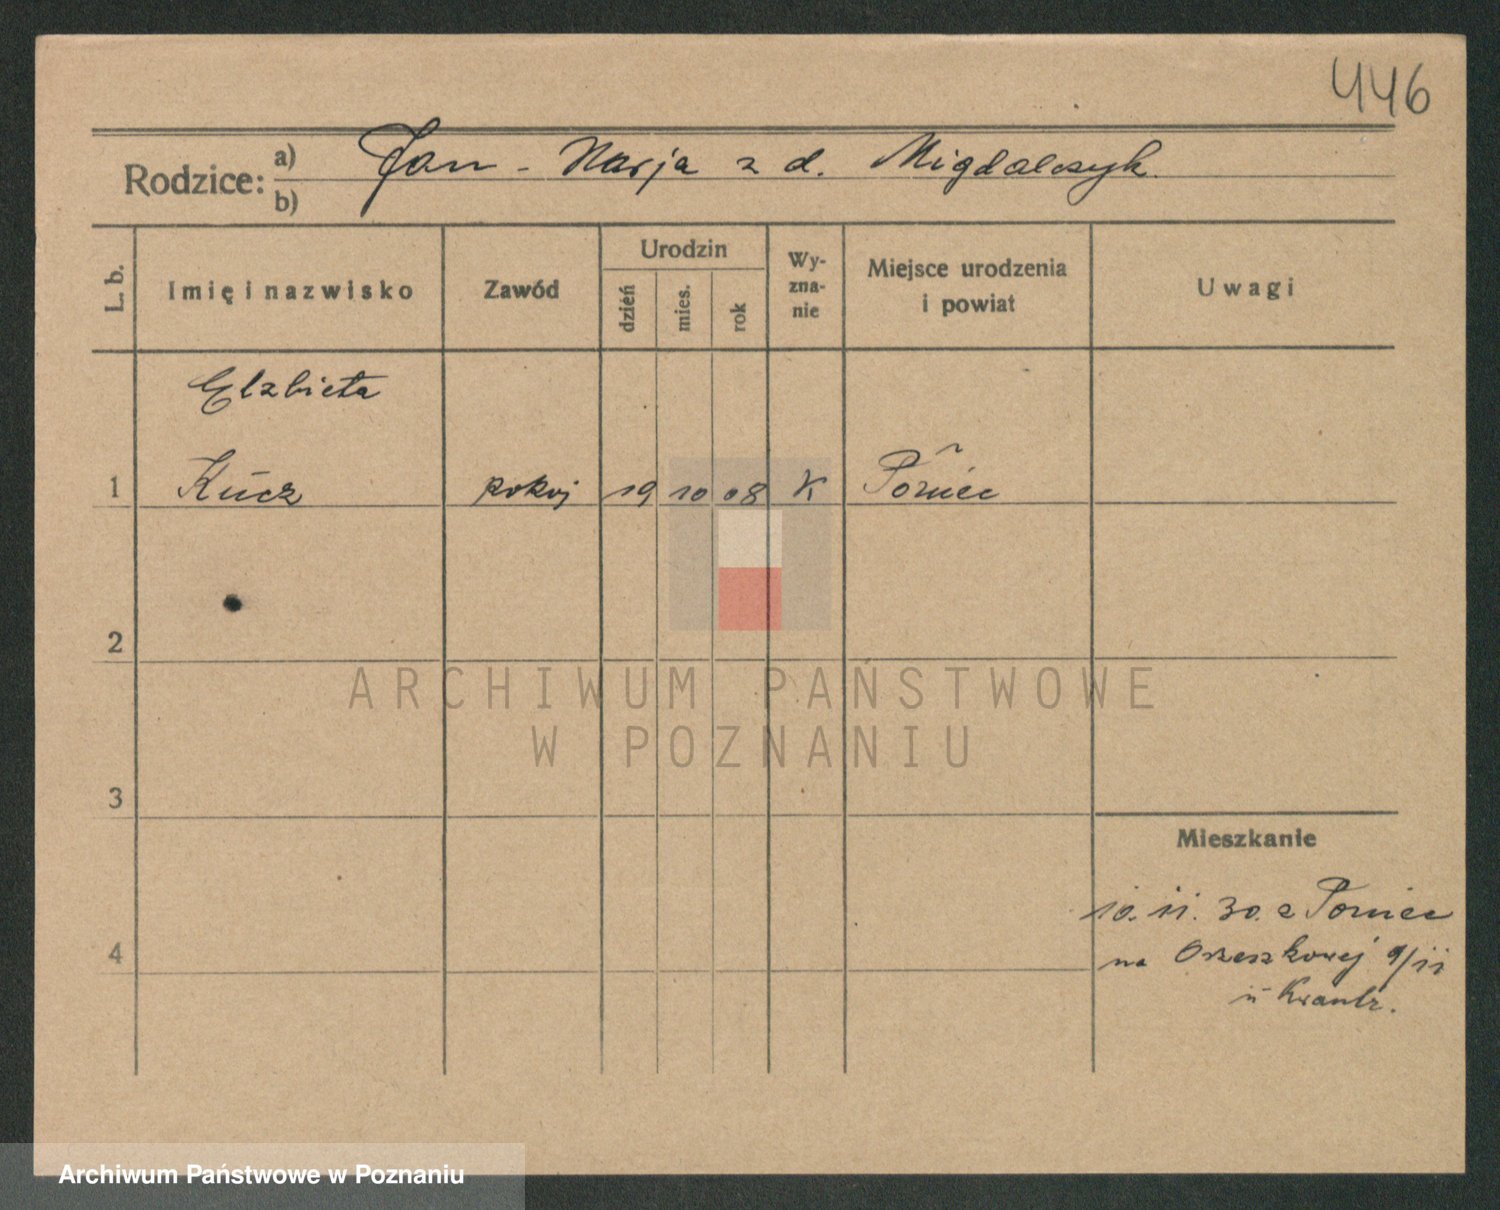 446
Rodzice: a) Jan - Marja z d. Migdalczyk.
b)
L. b.
Imię i nazwisko
Zawód
Urodzin
dzień
mies.
rok
Wy-
zna-
nie
Miejsce urodzenia
i powiat
Uwagi
Elzbieta
1 Kucz pokoj 19 10 08 K Poniec
2
3
4
Mieszkanie
10. 11. 30. z Poniec
na Orzeszkowej 9/11
u Krantz.
ARCHIWUM PAŃSTWOWE
W POZNANIU
Archiwum Państwowe w Poznaniu